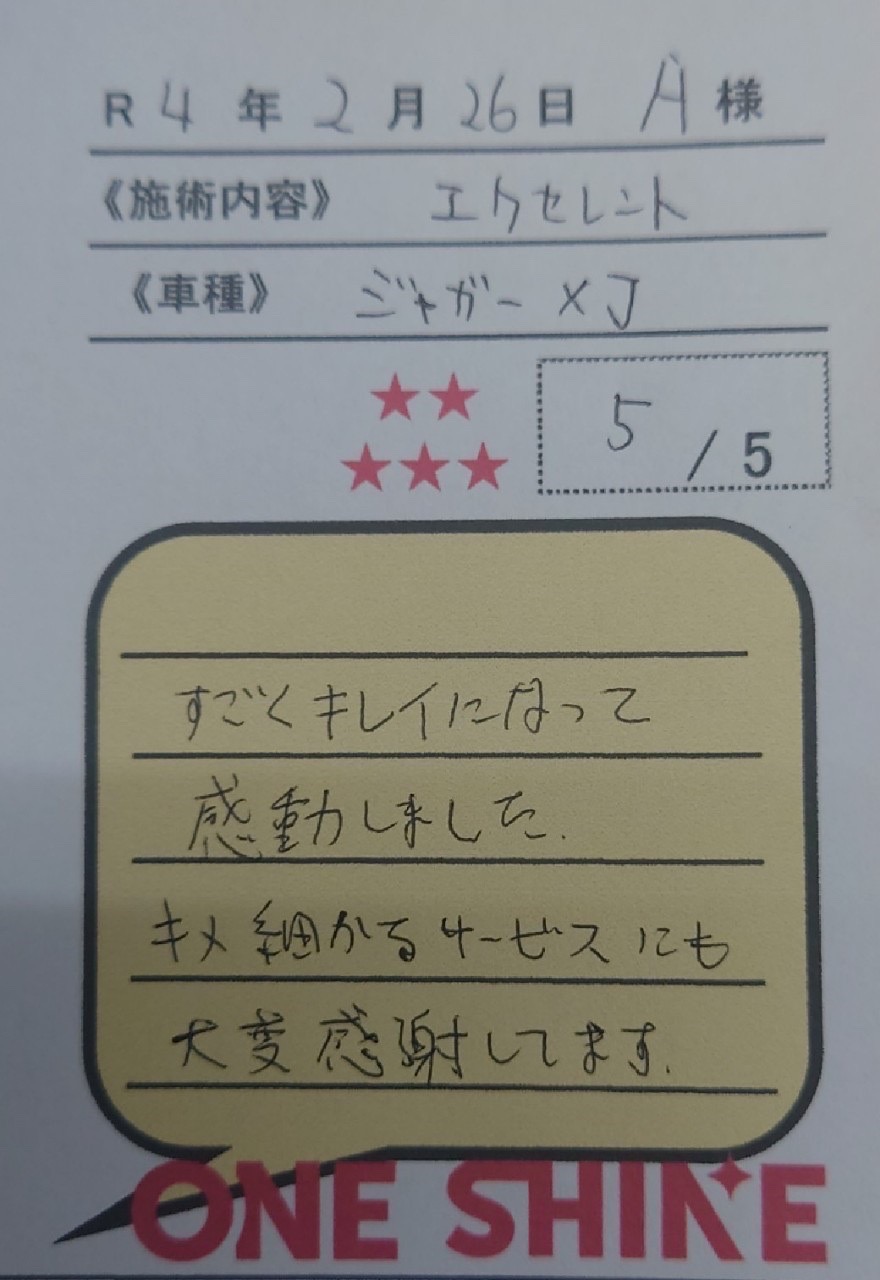 R4年2月26日 A様
《施術内容》 エクセレント
《車種》 ジャガー XJ
★★
★★★
5/5
すごくキレイになって
感動しました.
キメ細かなサービスにも
大変感謝してます.
ONE SHINE